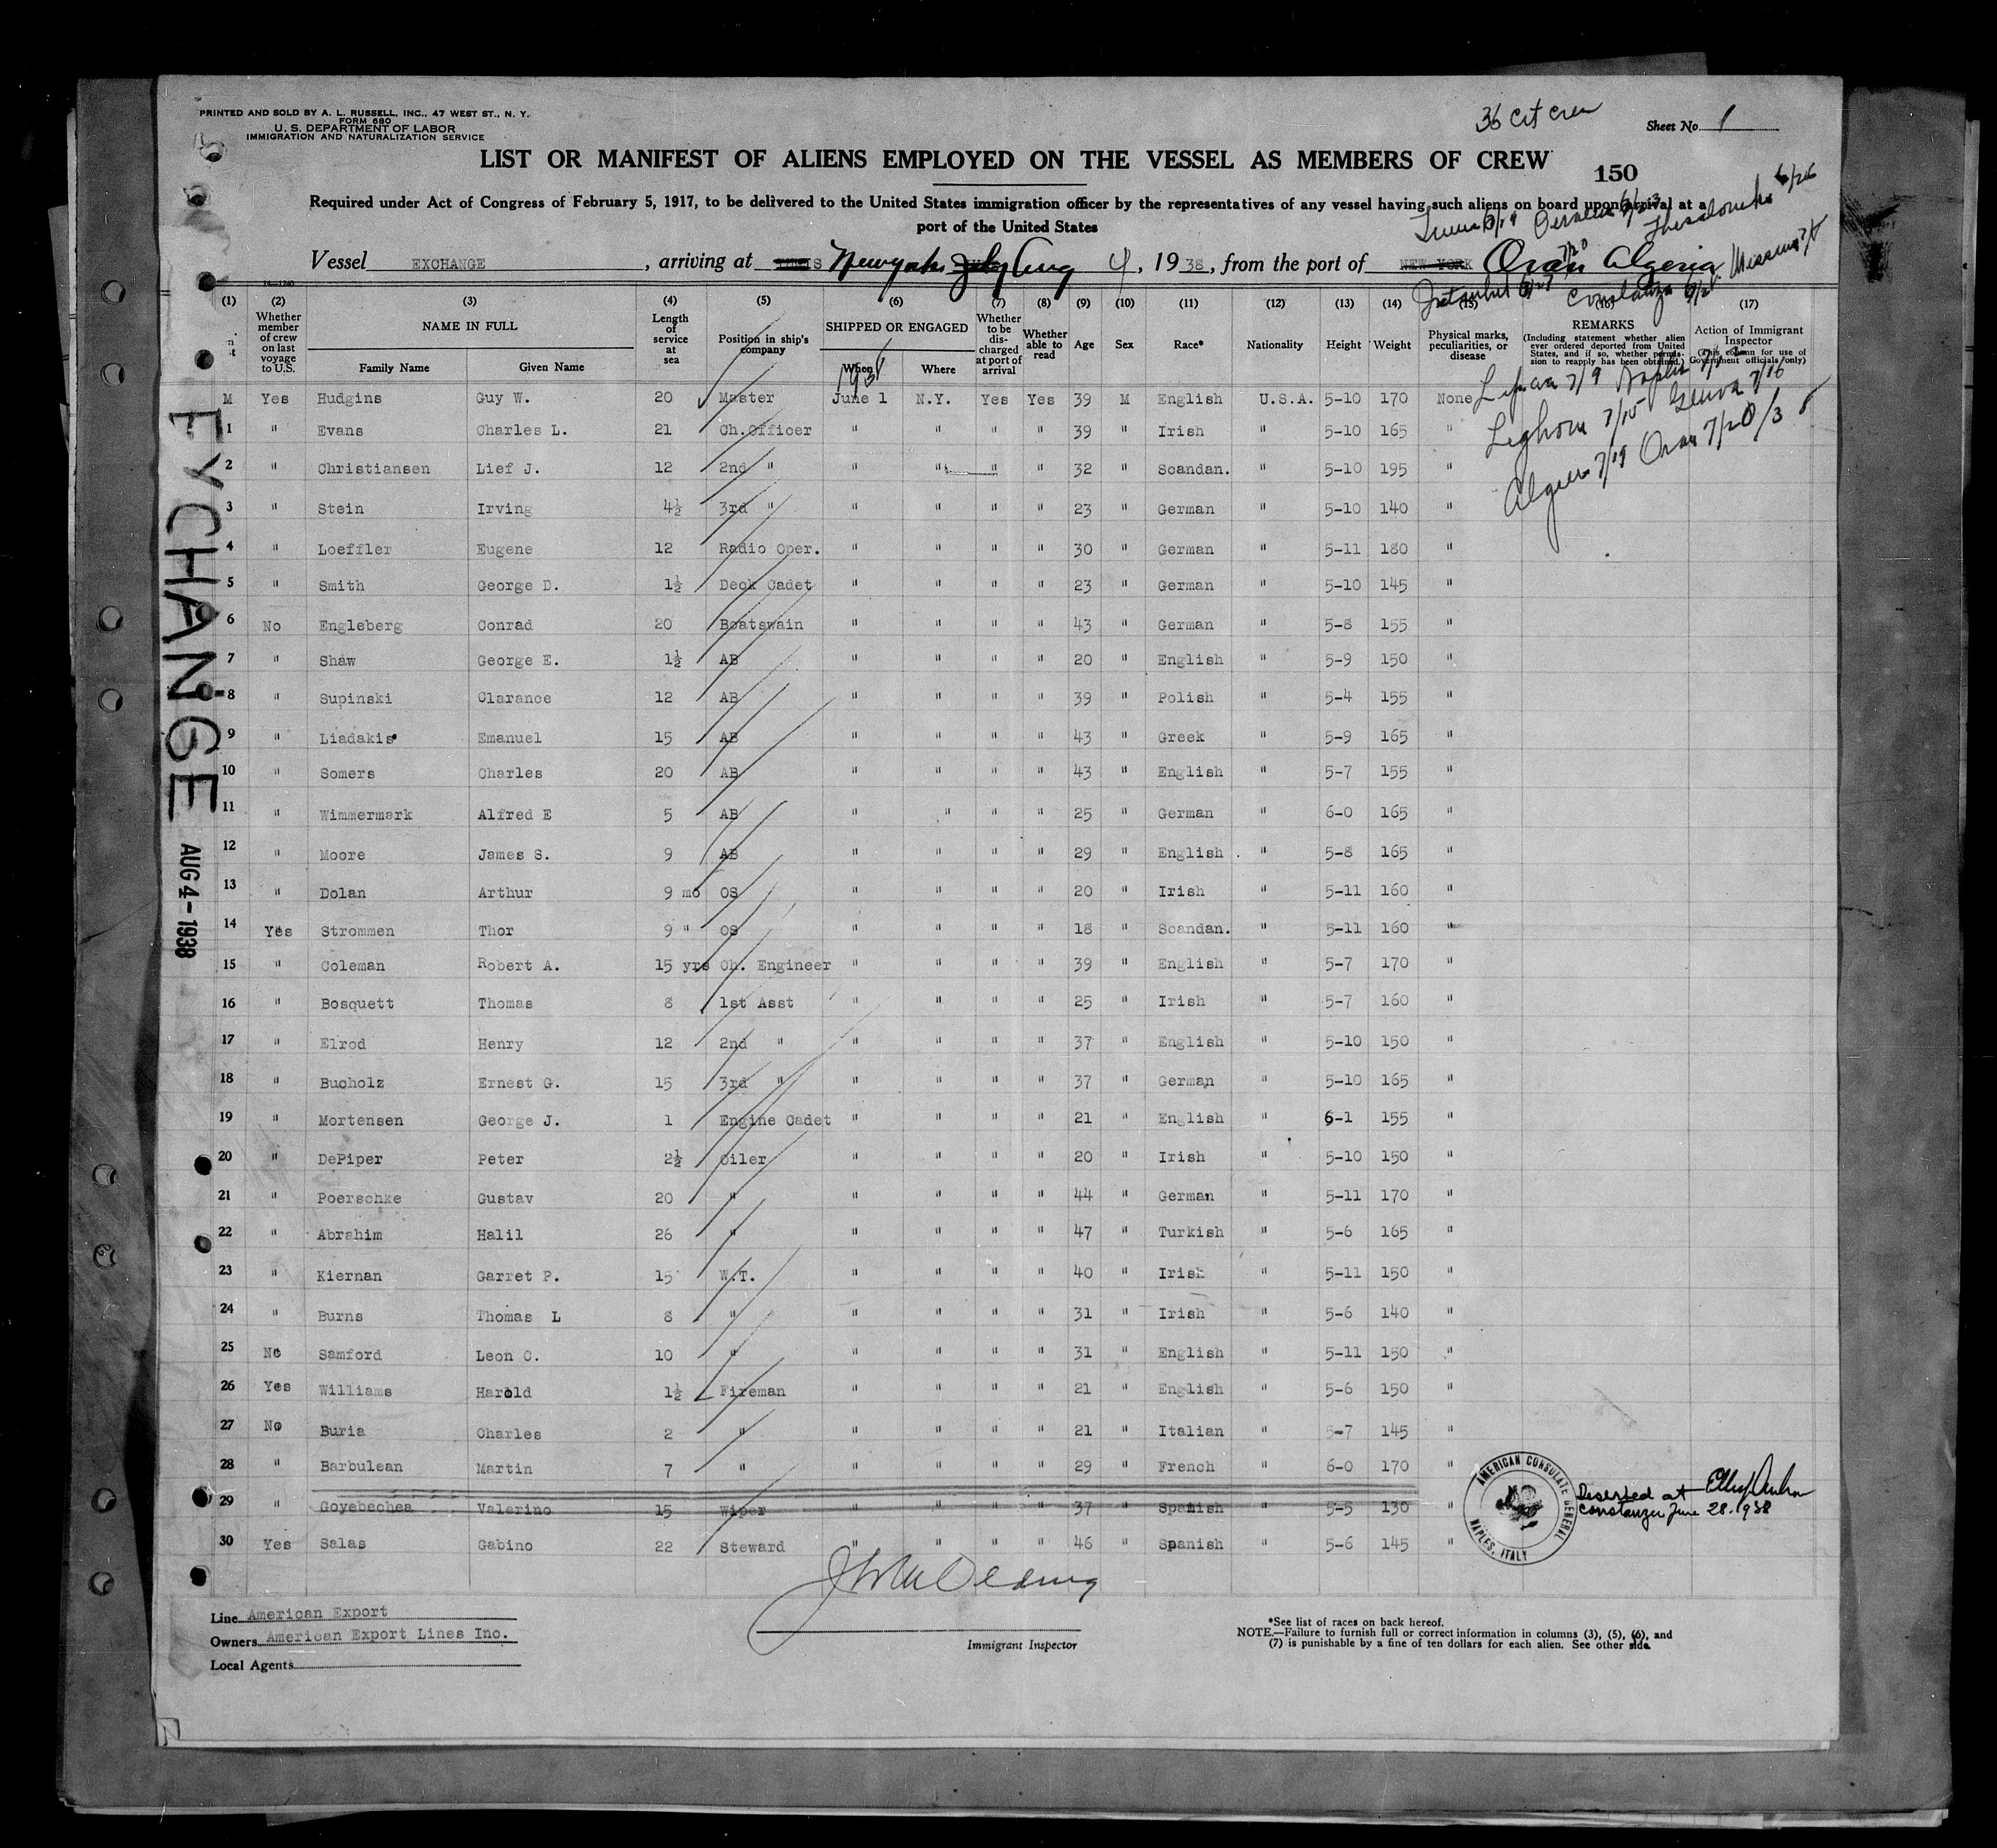 PRINTED AND SOLD BY A. L. RUSSELL, INC., 47 WEST ST., N. Y.
FORM 680
U. S. DEPARTMENT OF LABOR
IMMIGRATION AND NATURALIZATION SERVICE
36 Cit Crew
Sheet No. 1
LIST OR MANIFEST OF ALIENS EMPLOYED ON THE VESSEL AS MEMBERS OF CREW
150
Required under Act of Congress of February 5, 1917, to be delivered to the United States immigration officer by the representatives of any vessel having such aliens on board upon arrival at a
port of the United States
6/19 6/23 Thessaloniki 6/26
Vessel EXCHANGE, arriving at New York July Aug 4, 1938, from the port of NEW YORK Oran Algeria 7/20
Istanbul 6/27 Constanza 6/28 Messina 7/7
(1) (2) (3) (4) (5) (6) (7) (8) (9) (10) (11) (12) (13) (14) (15) (16) (17)
Whether member of crew on last voyage to U.S. NAME IN FULL Family Name Given Name Length of service at sea Position in ship's company SHIPPED OR ENGAGED When Where Whether to be discharged at port of arrival Whether able to read Age Sex Race* Nationality Height Weight Physical marks, peculiarities, or disease REMARKS (Including statement whether alien ever ordered deported from United States, and if so, whether permission to reapply has been obtained.) Action of Immigrant Inspector (This column for use of Government officials only)
1938
M Yes Hudgins Guy W. 20 Master June 1 N.Y. Yes Yes 39 M English U.S.A. 5-10 170 None
7/9 Naples
1 " Evans Charles L. 21 Ch.Officer " " " " 39 " Irish " 5-10 165 "
Leghorn 7/15 Genoa 7/16
2 " Christiansen Lief J. 12 2nd " " " " " 32 " Scandan. " 5-10 195 "
Algiers 7/19 Oran 7/20/38
3 " Stein Irving 4½ 3rd " " " " " 23 " German " 5-10 140 "
4 " Loeffler Eugene 12 Radio Oper. " " " " 30 " German " 5-11 180 "
5 " Smith George D. 1½ Deck Cadet " " " " 23 " German " 5-10 145 "
6 No Engleberg Conrad 20 Boatswain " " " " 43 " German " 5-8 155 "
7 " Shaw George E. 1½ AB " " " " 20 " English " 5-9 150 "
8 " Supinski Clarance 12 AB " " " " 39 " Polish " 5-4 155 "
9 " Liadakis Emanuel 15 AB " " " " 43 " Greek " 5-9 165 "
10 " Somers Charles 20 AB " " " " 43 " English " 5-7 155 "
11 " Wimmermark Alfred E 5 AB " " " " 25 " German " 6-0 165 "
12 " Moore James S. 9 AB " " " " 29 " English " 5-8 165 "
13 " Dolan Arthur 9 mo OS " " " " 20 " Irish " 5-11 160 "
14 Yes Strommen Thor 9 " OS " " " " 18 " Scandan. " 5-11 160 "
15 " Coleman Robert A. 15 yrs Ch. Engineer " " " " 39 " English " 5-7 170 "
16 " Bosquett Thomas 8 1st Asst " " " " 25 " Irish " 5-7 160 "
17 " Elrod Henry 12 2nd " " " " " 37 " English " 5-10 150 "
18 " Bucholz Ernest G. 15 3rd " " " " " 37 " German " 5-10 165 "
19 " Mortensen George J. 1 Engine Cadet " " " " 21 " English " 6-1 155 "
20 " DePiper Peter 2½ Oiler " " " " 20 " Irish " 5-10 150 "
21 " Poerschke Gustav 20 " " " " " 44 " German " 5-11 170 "
22 " Abrahim Halil 26 " " " " " 47 " Turkish " 5-6 165 "
23 " Kiernan Garret P. 15 W.T. " " " " 40 " Irish " 5-11 150 "
24 " Burns Thomas L 8 " " " " " 31 " Irish " 5-6 140 "
25 No Samford Leon C. 10 " " " " " 31 " English " 5-11 150 "
26 Yes Williams Harold 1½ Fireman " " " " 21 " English " 5-6 150 "
27 No Buria Charles 2 " " " " " 21 " Italian " 5-7 145 "
28 " Barbulean Martin 7 " " " " " 29 " French " 6-0 170 "
29 " Goyebechea Valerino 15 Wiper " " " " 37 " Spanish " 5-5 130 "
30 Yes Salas Gabino 22 Steward " " " " 46 " Spanish " 5-6 145 "
AMERICAN CONSULATE GENERAL
NAPLES, ITALY
Deserted at
Constanza June 28. 1938
EXCHANGE
AUG 4-1938
Line American Export
Owners American Export Lines Inc.
Local Agents
Immigrant Inspector
*See list of races on back hereof.
NOTE.—Failure to furnish full or correct information in columns (3), (5), (6), and
(7) is punishable by a fine of ten dollars for each alien. See other side.